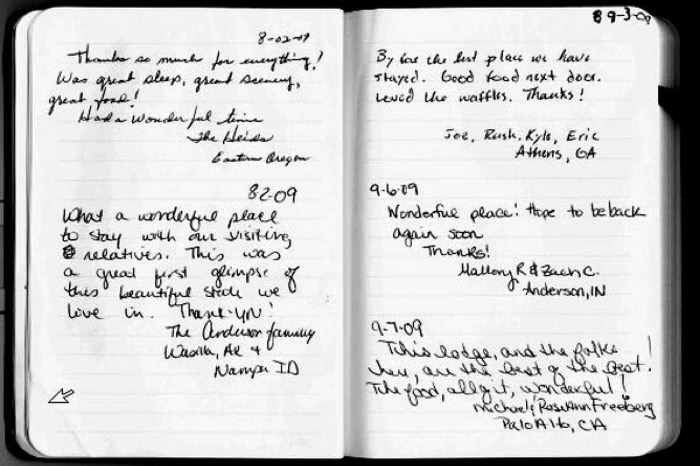 8-02-09
Thanks so much for everything!
Was great sleep, great scenery,
great food!
Had a Wonderful time
The Heids
Eastern Oregon
82-09
What a wonderful place
to stay with our visiting
relatives. This was
a great first glimpse of
this beautiful state we
live in. Thank-you!
The Anderson family
Wasilla, AK +
Nampa ID
8 9-3-09
By far the best place we have
stayed. Good food next door.
Loved the waffles. Thanks!
Joe, Rush, Kyle, Eric
Athens, GA
9-6-09
Wonderful place! Hope to be back
again soon
Thanks!
Mallory R & Zach C.
Anderson, IN
9-7-09
This lodge, and the folks
here, are the best of the best!
The food, all of it, wonderful!
Michael & RoseAnn Freeberg
Palo Alto, CA